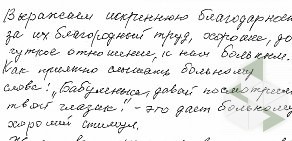 Выражаем искреннюю благодарность
за их благородный труд, хорошее, до
чуткое отношение, к нам больным.
Как приятно слышать больному
слова! „Бабуленька, давай посмотрим
твой глазик!" - это даёт больному
хороший стимул.